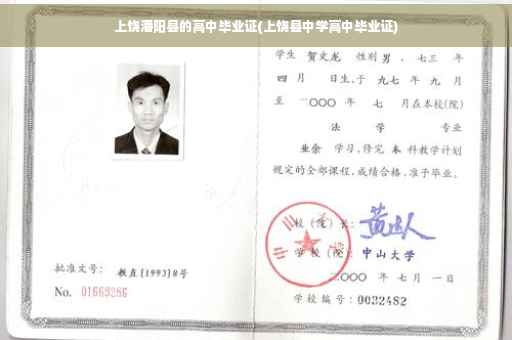 上饶潘阳县的高中毕业证(上饶县中学高中毕业证)
学生 贺文龙 性别 男 、七三 年
四 月 日生,于 九七 年 九 月
至 二〇〇〇 年 七 月在本校(院)
法 学 专业
业余 学习,修完 本 科教学计划
规定的全部课程,成绩合格,准予毕业。
校(院)长:
学校(院): 中山大学
二〇〇〇 年 七 月 一 日
学校编号: 0032482
批准文号: 教直[1993]8号
No. 01669286